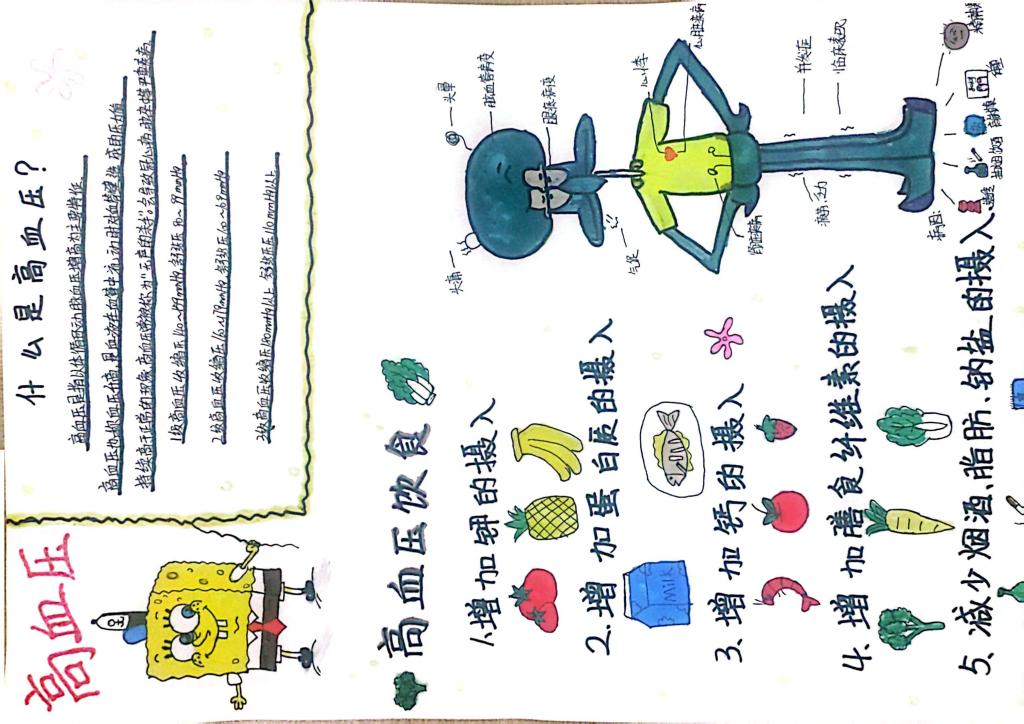 高血压
什么是高血压？
高血压是指以体循环动脉血压增高为主要特征，
高血压也叫血压升高，是血液在血管中流动时对血管壁造成的压力值
持续高于正常的现象，高血压常被称为"无声的杀手"，会导致冠心病、脑卒中等严重疾病。
1级高血压收缩压140~159mmHg，舒张压90~99mmHg
2级高血压收缩压160~179mmHg，舒张压100~109mmHg
3级高血压收缩压180mmHg以上，舒张压110mmHg以上
头晕
脑血管病变
眼底病变
头痛
气促
心悸
心脏疾病
肾脏疾病
并发症
临床表现
病因：
高血压饮食
1.增加钾的摄入
2.增加蛋白质的摄入
Milk
3.增加钙的摄入
4.增加膳食纤维素的摄入
5.减少烟酒、脂肪、钠盐的摄入